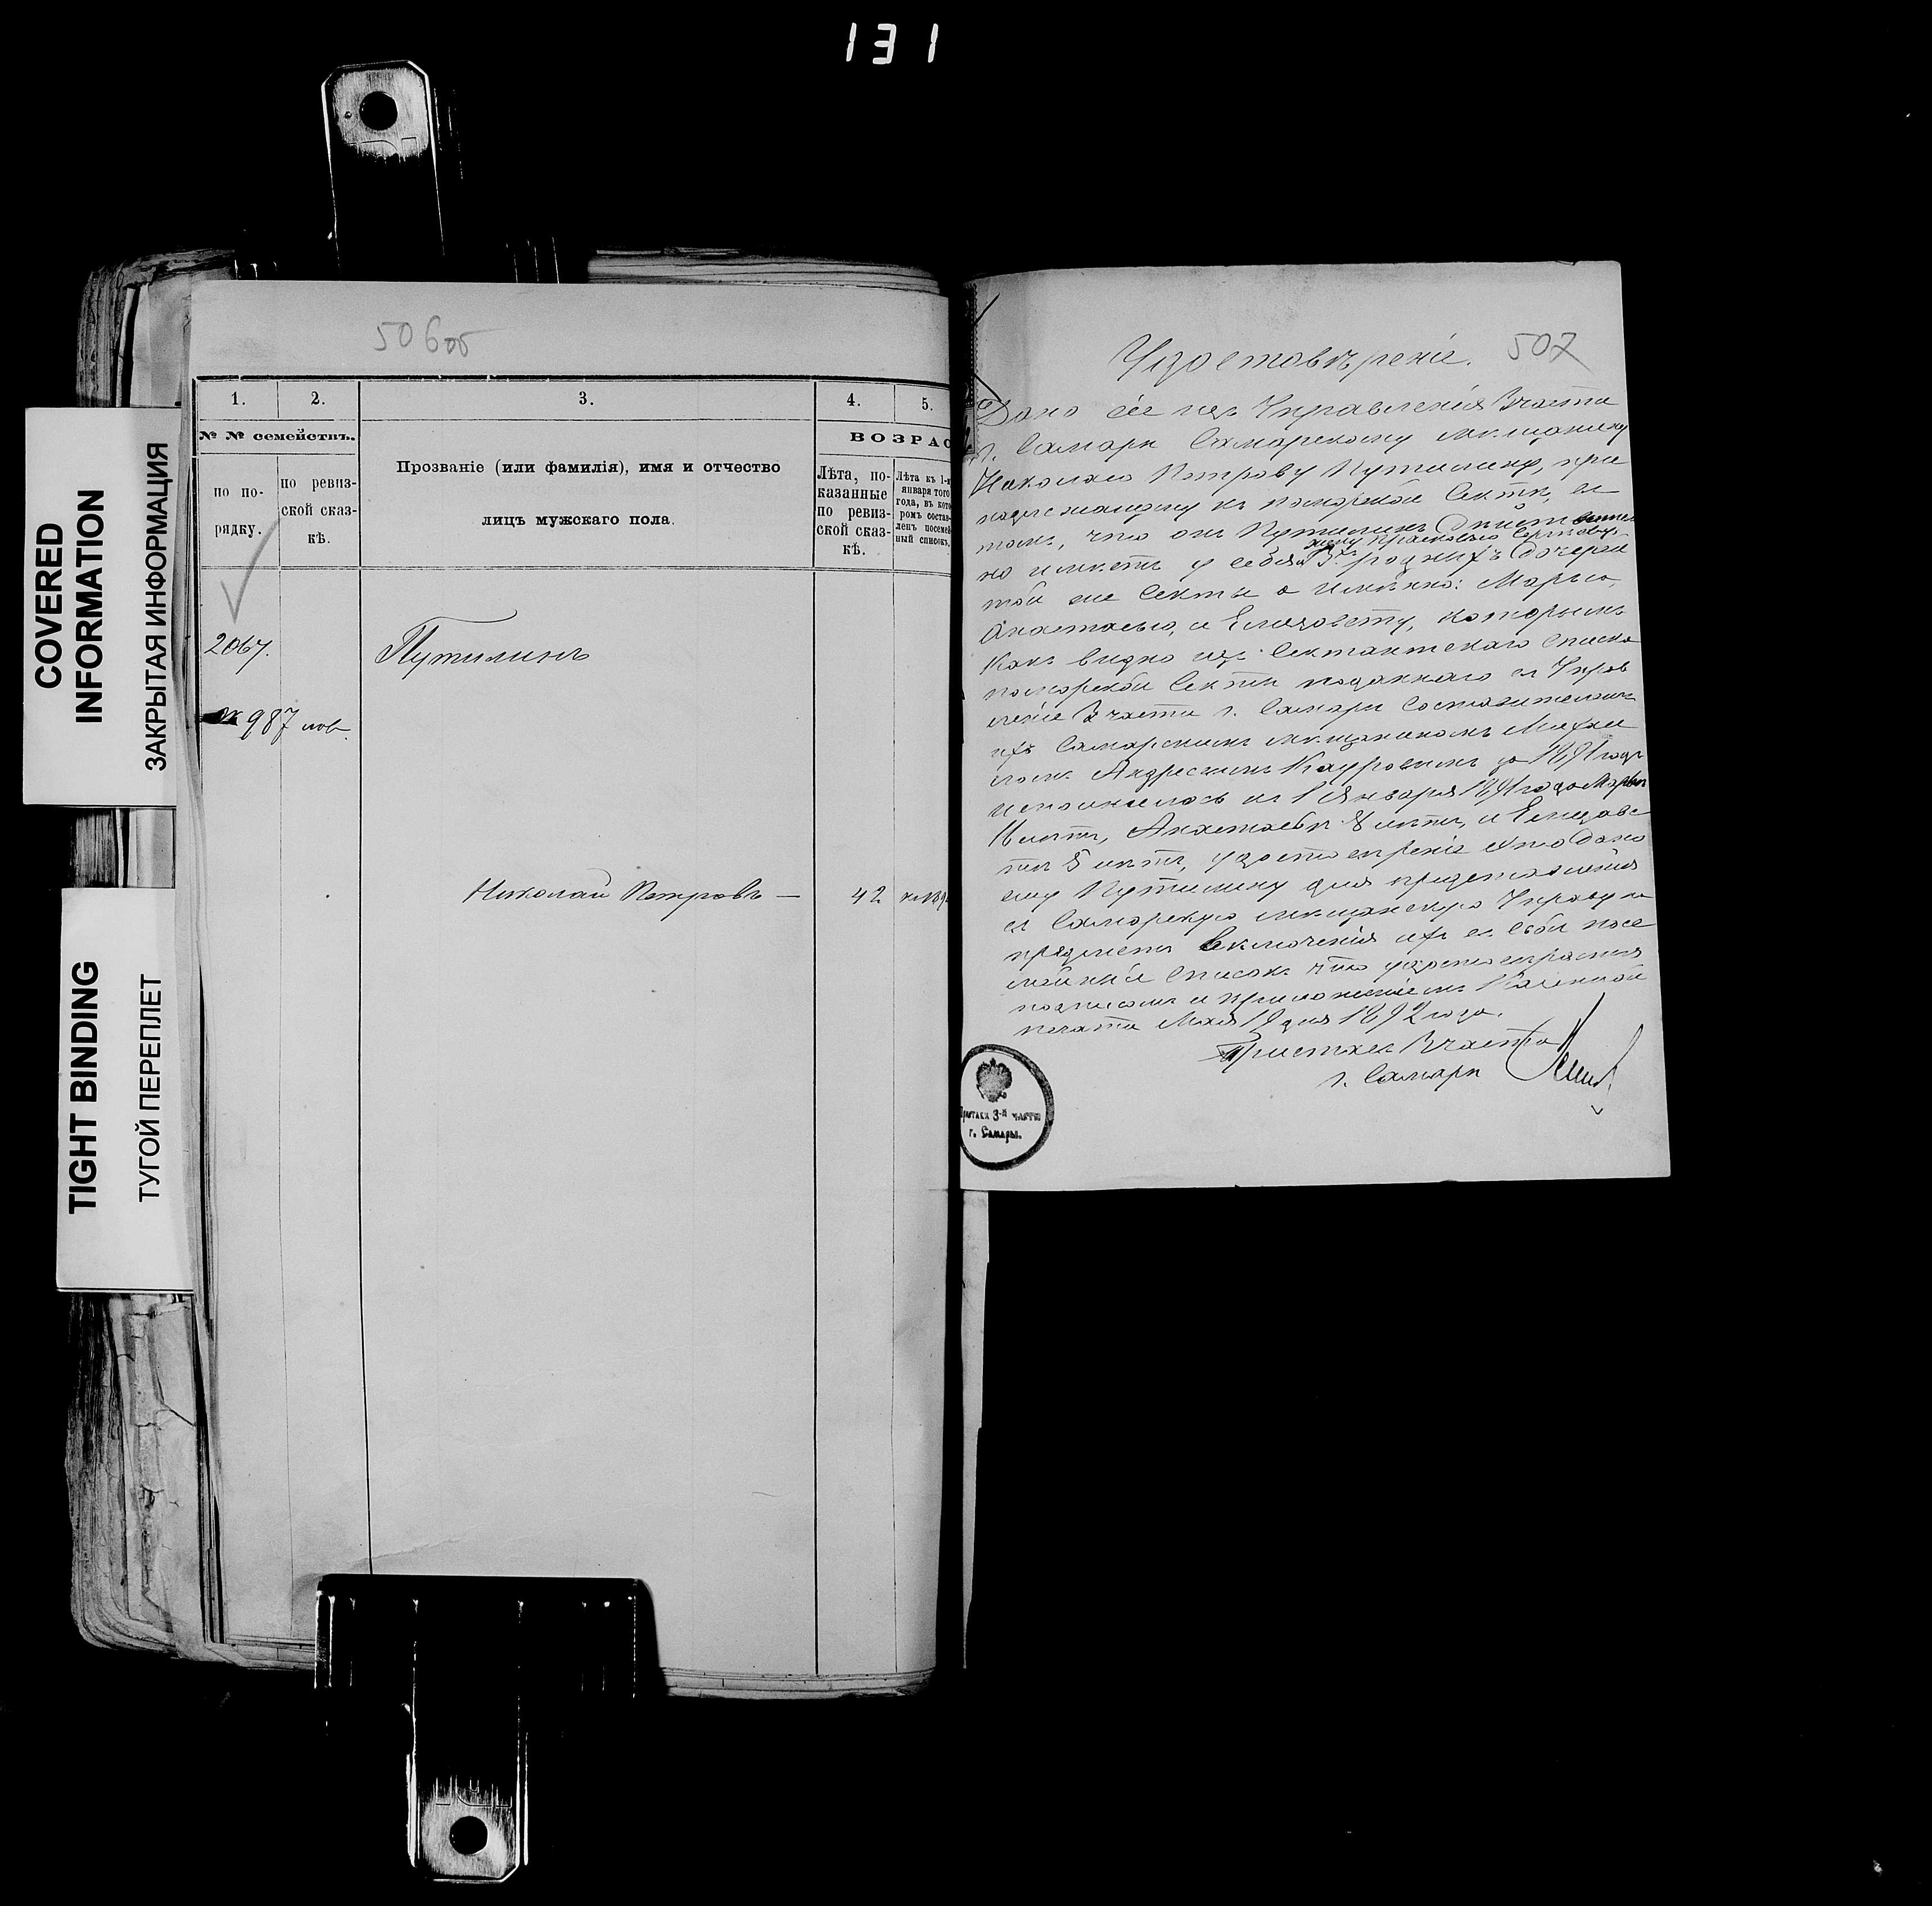 131
COVERED
INFORMATION
ЗАКРЫТАЯ ИНФОРМАЦИЯ
TIGHT BINDING
ТУГОЙ ПЕРЕПЛЕТ
506об
1. 2. 3. 4. 5.
№ № семействъ.
по по-
рядку.
по ревиз-
ской сказ-
кѣ.
Прозваніе (или фамилія), имя и отчество
лицъ мужскаго пола.
ВОЗРАС
Лѣта, по-
казанные
по ревиз-
ской сказ-
кѣ.
Лѣта къ 1-
января того
года, въ кото
ромъ состав-
ленъ посемей
ный списокъ.
2067.
Путилинъ
987 нов.
Николай Петровъ — 42
507
Удостовѣреніе.
Дано сіе изъ Управленія 3 части
г. Самары Самарскому мѣщанину
Николаю Петрову Путилину, при
надлежащему къ поморской сектѣ, въ
томъ, что онъ Путилинъ действитель
жену Прасковью Сергѣеву,
но имѣетъ у себя 3х родныхъ дочерей
той же секты а именно: Марью,
Анастасью, и Елизавету, которымъ
какъ видно изъ сектантскаго списка
поморской секты поданнаго въ Управ
леніе 3 части г. Самары составителемъ
ихъ Самарскимъ мѣщаниномъ Михаи
ломъ Андреевымъ за 1891 годъ
исполнилось къ 1 января 1891 года Марьѣ
лѣтъ, Анастасьѣ 8 лѣтъ, и Елизаве
тѣ 5 лѣтъ, удостовѣреніе это дано
ему Путилину для представленія
въ Самарскую мѣщанскую Управу на
предметъ включенія ихъ въ свой посе
мейный списокъ что удостовѣряется
подписомъ и приложеніемъ казенной
печати Мая 19 дня 1892 года.
Приставъ 3 части
г. Самары
Пристава 3-й части
г. Самары.